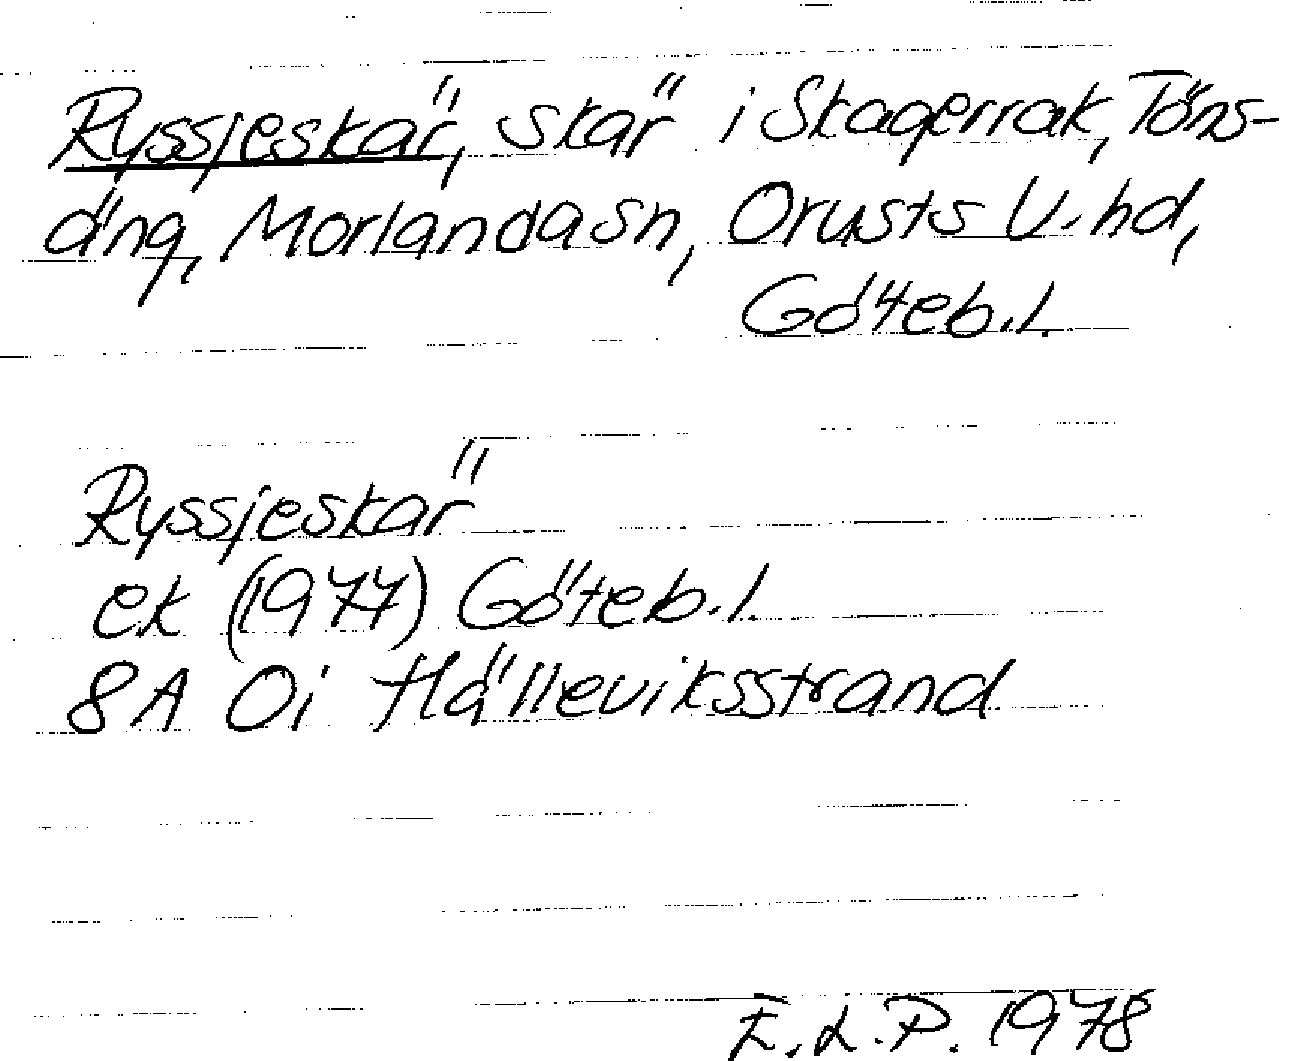 Ryssjeskär, skär i Skagerrak, Töns-
äng, Morlanda sn, Orusts V. hd,
Göteb. l.
Ryssjeskär
ek (1977) Göteb. l.
8A 0i Hälleviksstrand
E. L. P. 1978